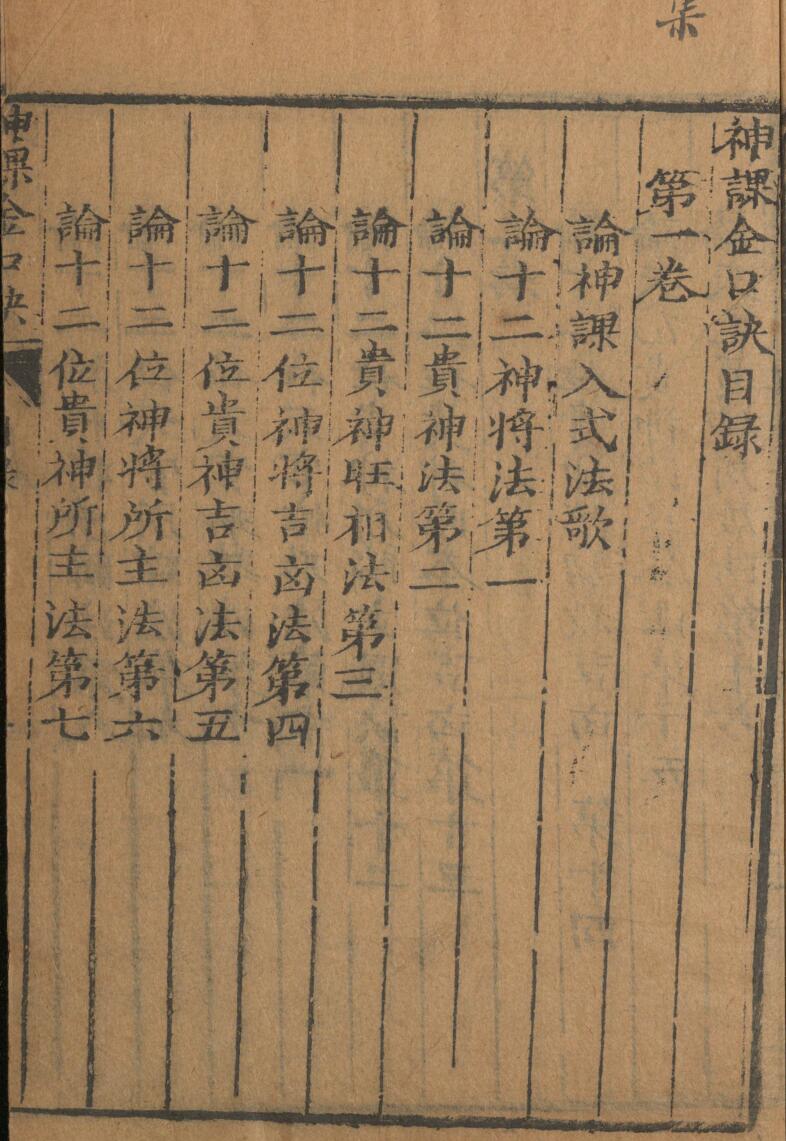 集
神課金口訣目録
第一巻
論神課入式法歌
論十二神將法第一
論十二貴神法第二
論十二貴神旺相法第三
論十二位神將吉凶法第四
論十二位貴神吉凶法第五
論十二位神將所主法第六
論十二位貴神所主法第七
神課金口訣